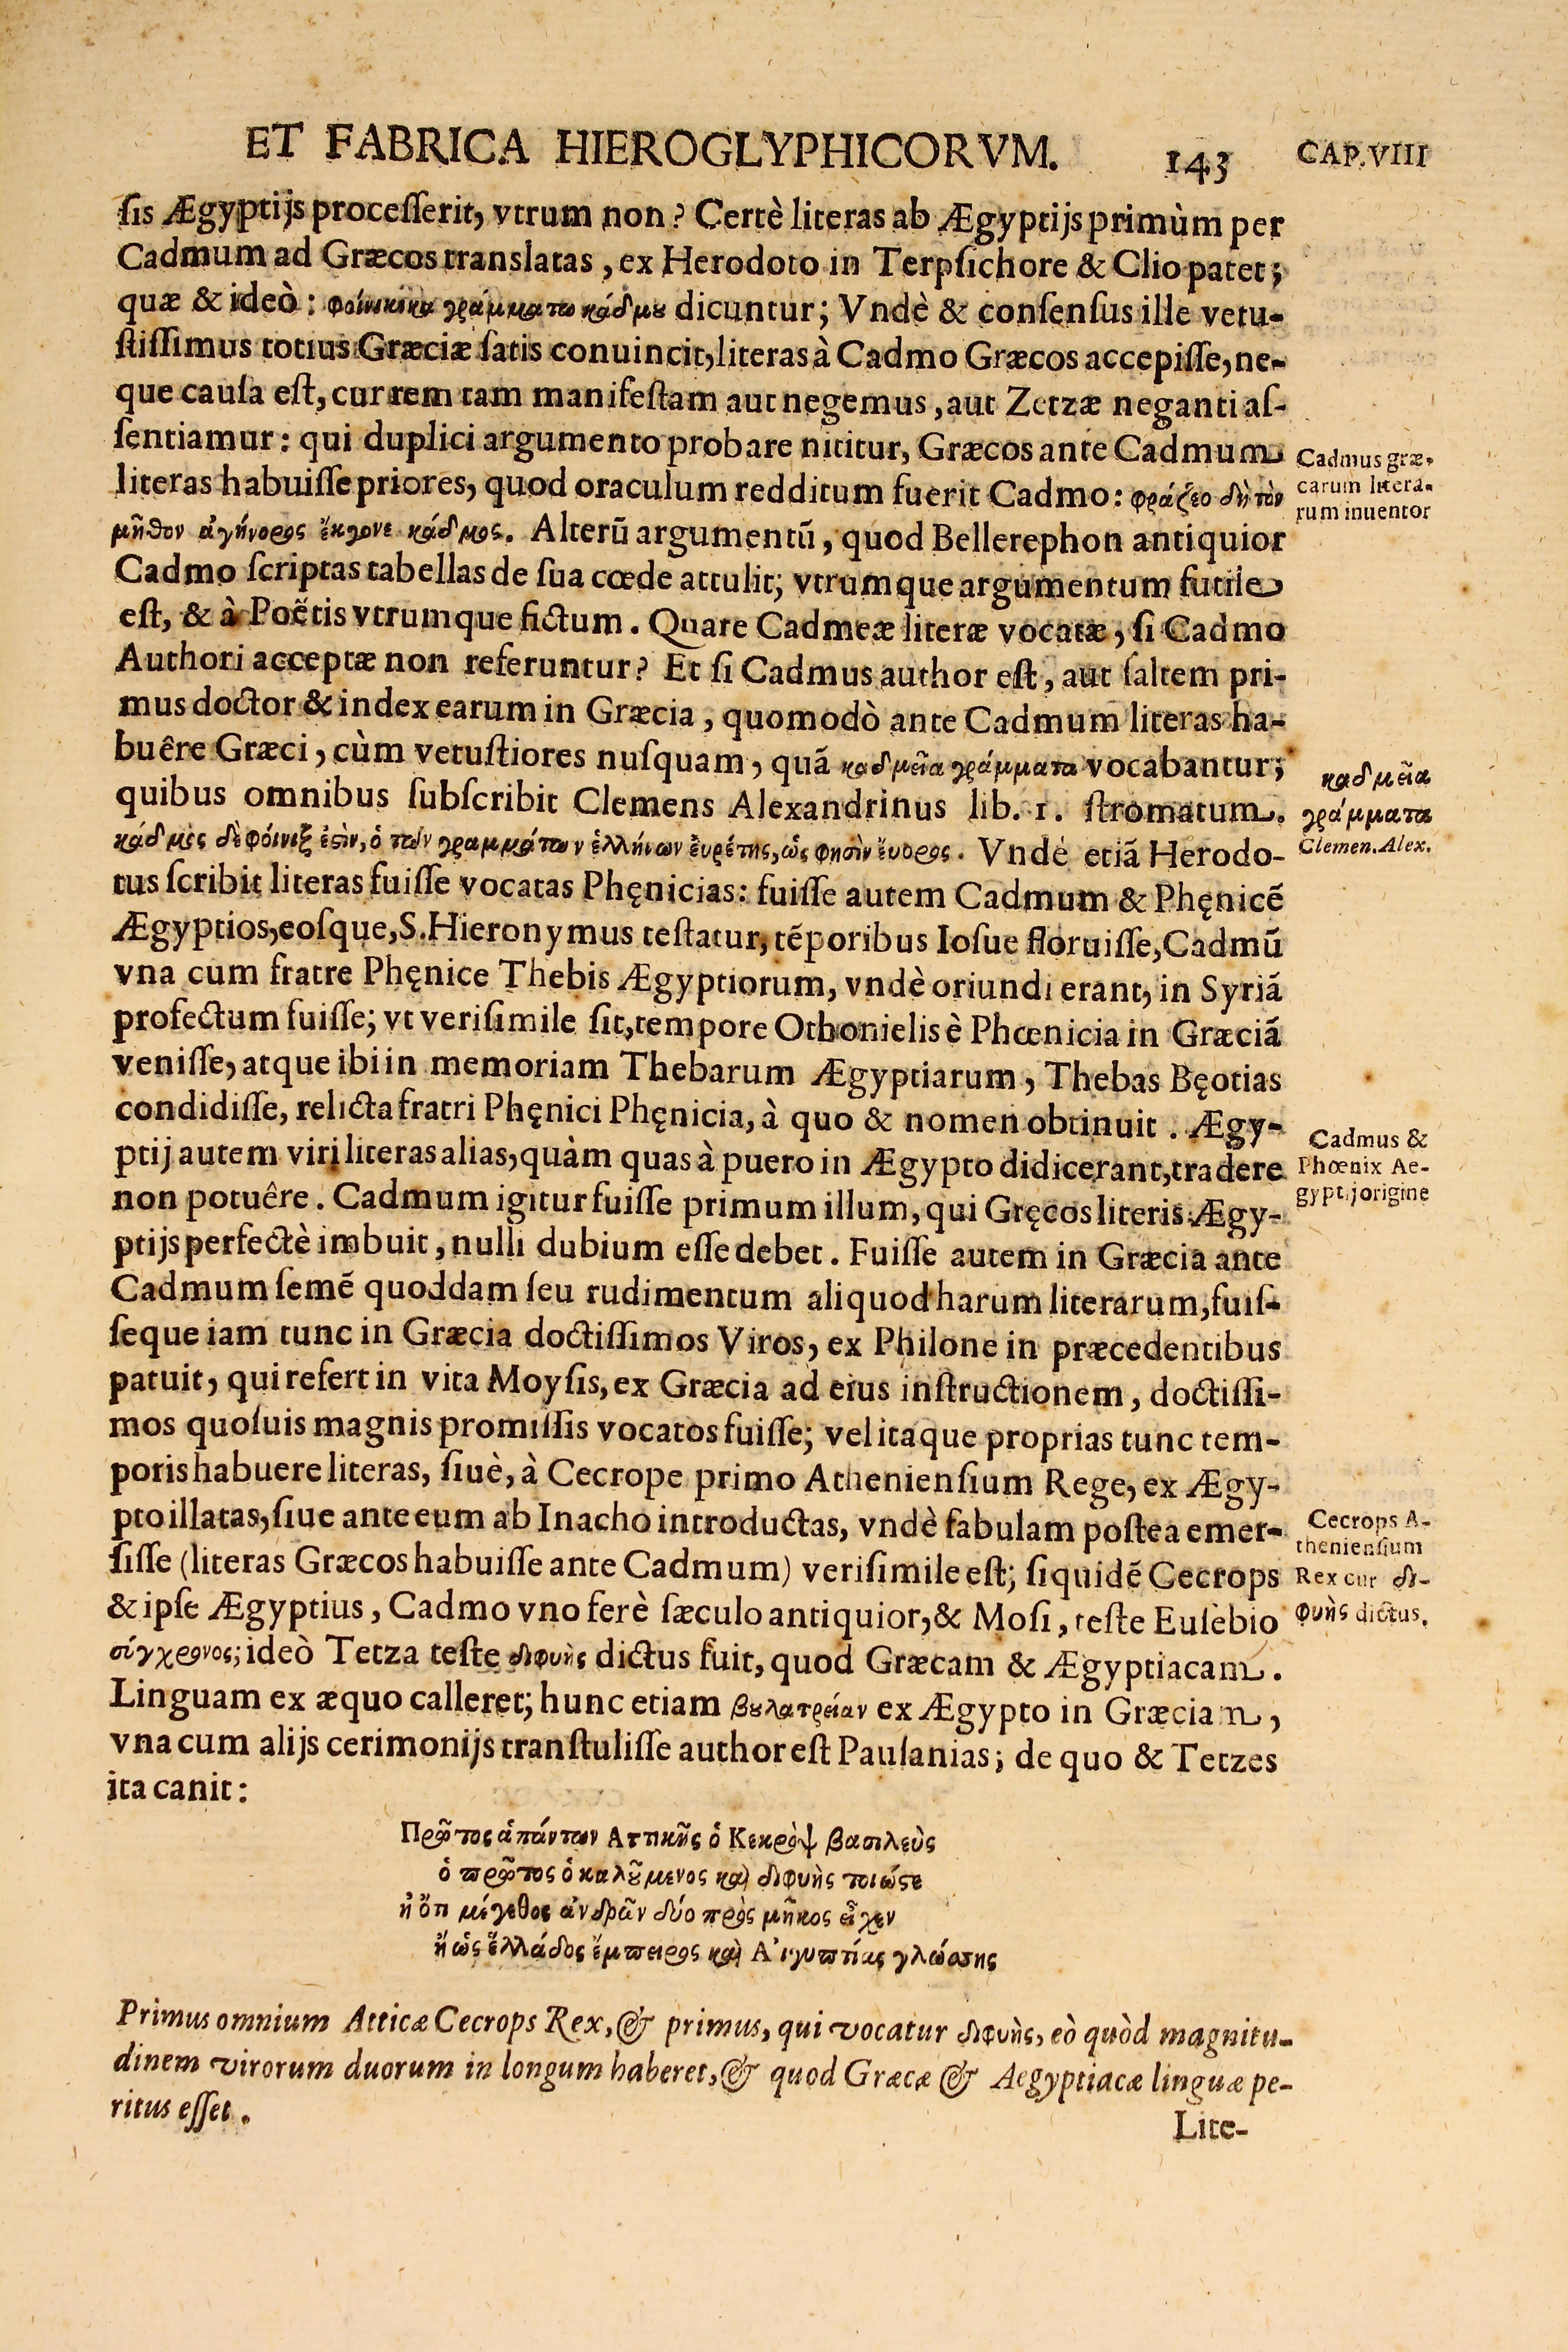 ET FABRICA HIEROGLYPHICORVM. 143 CAP.VIII
ſis Ægyptijs proceſſerit, vtrum non? Certè literas ab Ægyptijs primùm per
Cadmum ad Græcos translatas, ex Herodoto in Terpſichore & Clio patet;
quæ & ideò: φοίνικικα γράμματα κάδμȣ dicuntur; Vndè & conſenſus ille vetu-
ſtiſſimus totius Græciæ ſatis conuincit, literas à Cadmo Græcos accepiſſe, ne-
que cauſa eſt, cur rem tam manifeſtam aut negemus, aut Zetzæ neganti aſ-
ſentiamur: qui duplici argumento probare nititur, Græcos ante Cadmum
literas habuiſſe priores, quod oraculum redditum fuerit Cadmo: φράζεο δὴ τὸν
μῆθον ἀγήνορος ἔκγονε κάδμος. Alterũ argumentũ, quod Bellerephon antiquior
Cadmo ſcriptas tabellas de ſua cœde attulit; vtrumque argumentum futile
eſt, & à Poëtis vtrumque fictum. Quare Cadmeæ literæ vocatæ, ſi Cadmo
Authori acceptæ non referuntur? Et ſi Cadmus author eſt, aut ſaltem pri-
mus doctor & index earum in Græcia, quomodò ante Cadmum literas ha-
buêre Græci, cùm vetuſtiores nuſquam, quã καδμεῖα γράμματα vocabantur;
quibus omnibus ſubſcribit Clemens Alexandrinus lib. 1. ſtromatum.
κάδμος δὲ φόινιξ ἐςὶν, ὁ τῶν γραμμάτων ἑλλήνων ἑυρέτης, ὡς φησὶν ἔυορος. Vndè etiã Herodo-
tus ſcribit literas fuiſſe vocatas Phęnicias: fuiſſe autem Cadmum & Phęnicẽ
Ægyptios, eoſque, S. Hieronymus teſtatur, tẽporibus Ioſue floruiſſe, Cadmũ
vna cum fratre Phęnice Thebis Ægyptiorum, vndè oriundi erant, in Syriã
profectum fuiſſe; vt veriſimile ſit, tempore Othonielis è Phœnicia in Græciã
veniſſe, atque ibi in memoriam Thebarum Ægyptiarum, Thebas Bęotias
condidiſſe, relicta fratri Phęnici Phęnicia, à quo & nomen obtinuit. Ægy-
ptij autem viri literas alias, quàm quas à puero in Ægypto didicerant, tradere
non potuêre. Cadmum igitur fuiſſe primum illum, qui Gręcos literis Ægy-
ptijs perfectè imbuit, nulli dubium eſſe debet. Fuiſſe autem in Græcia ante
Cadmum ſemẽ quoddam ſeu rudimentum aliquod harum literarum, fuiſ-
ſeque iam tunc in Græcia doctiſſimos Viros, ex Philone in præcedentibus
patuit, qui refert in vita Moyſis, ex Græcia ad eius inſtructionem, doctiſſi-
mos quoſuis magnis promiſſis vocatos fuiſſe; vel itaque proprias tunc tem-
poris habuere literas, ſiuè, à Cecrope primo Athenienſium Rege, ex Ægy-
pto illatas, ſiue ante eum ab Inacho introductas, vndè fabulam poſtea emer-
ſiſſe (literas Græcos habuiſſe ante Cadmum) veriſimile eſt; ſiquidẽ Cecrops
& ipſe Ægyptius, Cadmo vno ferè ſæculo antiquior, & Moſi, teſte Euſebio
σύγχρονος; ideò Tetza teſte διφυὴς dictus fuit, quod Græcam & Ægyptiacam.
Linguam ex æquo calleret; hunc etiam βȣλατρείαν ex Ægypto in Græciam,
vna cum alijs cerimonijs tranſtuliſſe author eſt Pauſanias; de quo & Tetzes
ita canit:
Πρῶτος ἁπάντων Αττικῆς ὁ Κεκρὸψ βασιλεὺς
ὁ πρῶτος ὁ καλȣ͂μενος καὶ διφυὴς τοιώςε
ἢ ὅτι μέγεθος ἀνδρῶν δύο πρὸς μῆκος εἶχεν
ἢ ὡς ἑλλάδος ἔμπειρος καὶ Αἰγυπτίας γλώσσης
Primus omnium Atticæ Cecrops Rex, & primus, qui vocatur διφυὴς, eò quòd magnitu-
dinem virorum duorum in longum haberet, & quod Græcæ & Aegyptiacæ linguæ pe-
ritus eſſet.
Lite-
Cadmus græ-
carum litera-
rum inuentor
καδμεῖα
γράμματα
Clemen. Alex.
Cadmus &
Phœnix Ae-
gyptij origine
Cecrops A-
thenienſium
Rex cur δι-
φυὴς dictus.